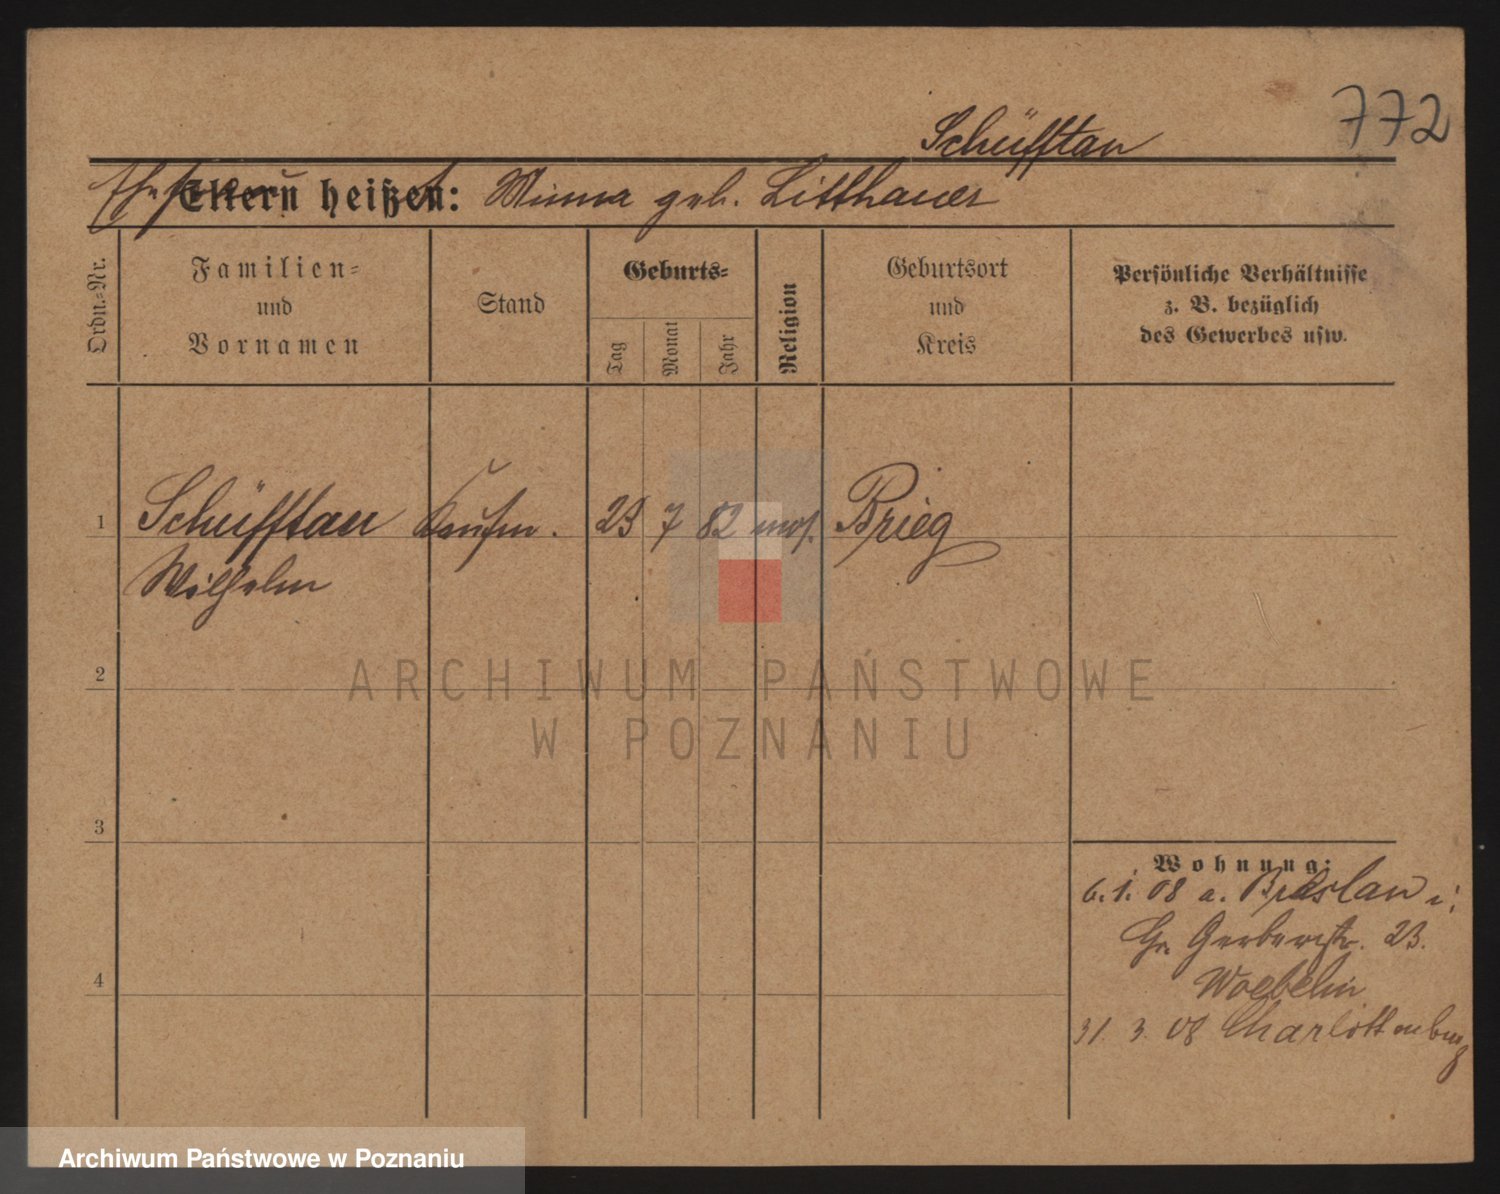 772
Schüfftan
Ehefrau Eltern heißen: Minna geb. Litthauer
Ordn.-Nr.
Familien-
und
Vornamen
Stand
Geburts-
Tag
Monat
Jahr
Religion
Geburtsort
und
Kreis
Persönliche Verhältnisse
z. B. bezüglich
des Gewerbes usw.
1 Schüfftan Kaufm. 23 7 82 mos. Brieg
Wilhelm
2
ARCHIWUM PAŃSTWOWE
W POZNANIU
3
Wohnung:
6. 1. 08 a. Breslau i:
Gr. Gerberstr. 23.
4
31. 3. 08 Charlottenburg
Archiwum Państwowe w Poznaniu